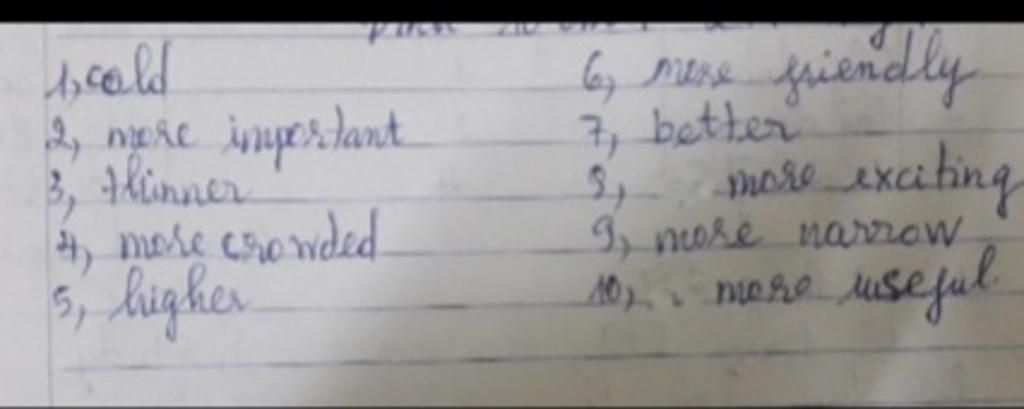 1, cold
2, more important
3, thinner
4, more crowded
5, higher
6, more friendly
7, better
8, more exciting
9, more narrow
10, more useful